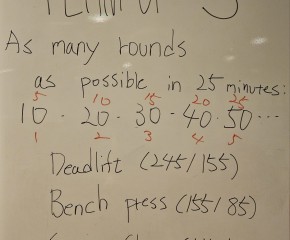 As many rounds
as possible in 25 minutes:
5 10 15 20 25
10 · 20 · 30 · 40 · 50 ...
1 2 3 4 5
Deadlift (245/155)
Bench press (155/85)